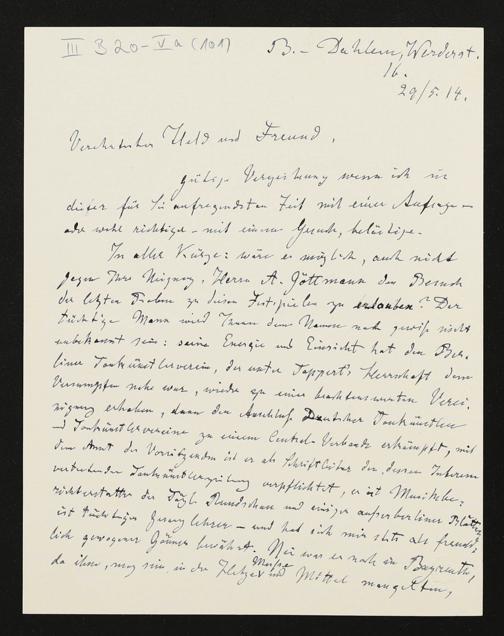 III B 20 - Va (101)
B. - Dahlem, Werderst.
16.
29/5.14.
Verehrtester Held und Freund,
gütige Verzeihung wenn ich in
dieser für Sie aufregendsten Zeit mit einer Anfrage –
oder wohl richtiger – mit einem Gesuch, belästige.
In aller Kürze: wäre es möglich, auch nicht
gegen Ihre Neigung, Herrn A. Göttmann den Besuch
der letzten Proben zu diesen Festspielen zu erlauben? Der
tüchtige Mann wird Ihnen dem Namen nach gewiss nicht
unbekannt sein: seine Energie und Einsicht hat den Ber-
liner Tonkünstlerverein, der unter Tappert's Herrschaft dem
Versumpfen nahe war, wieder zu einer beachtenswerten Verei-
nigung erhoben, dann den Anschluss Deutscher Tonkünstler
und Tonkünstlervereine zu einem Central-Verbande erkämpft, mit
dem Amt des Vorsitzenden ist er als Schriftleiter der, dessen Interessen
vertretenden Tonkünstlerzeitung verpflichtet, er ist Musikbe-
richterstatter der Tägl. Rundschau und einiger ausserberliner Blätter,
ist tüchtiger Gesanglehrer – und hat sich mir stets als freund-
lich gewogener Gönner bewährt. Nie war er noch in Bayreuth,
da ihm, mag sein in der Hetze, Musse und Mittel mangelten,